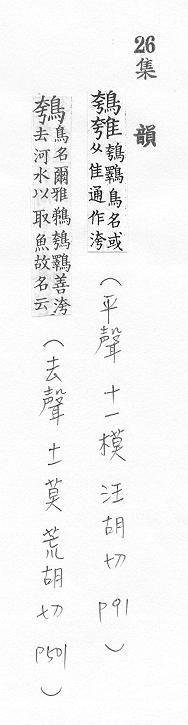 26 集 韻
鴮
鴮鸅鳥名或
从隹通作洿
(平聲 十一模 汪胡切 P91)
鴮
鳥名爾雅鵜鴮鸅善洿
去河水以取魚故名云
(去聲 十一莫 荒胡切 P501)